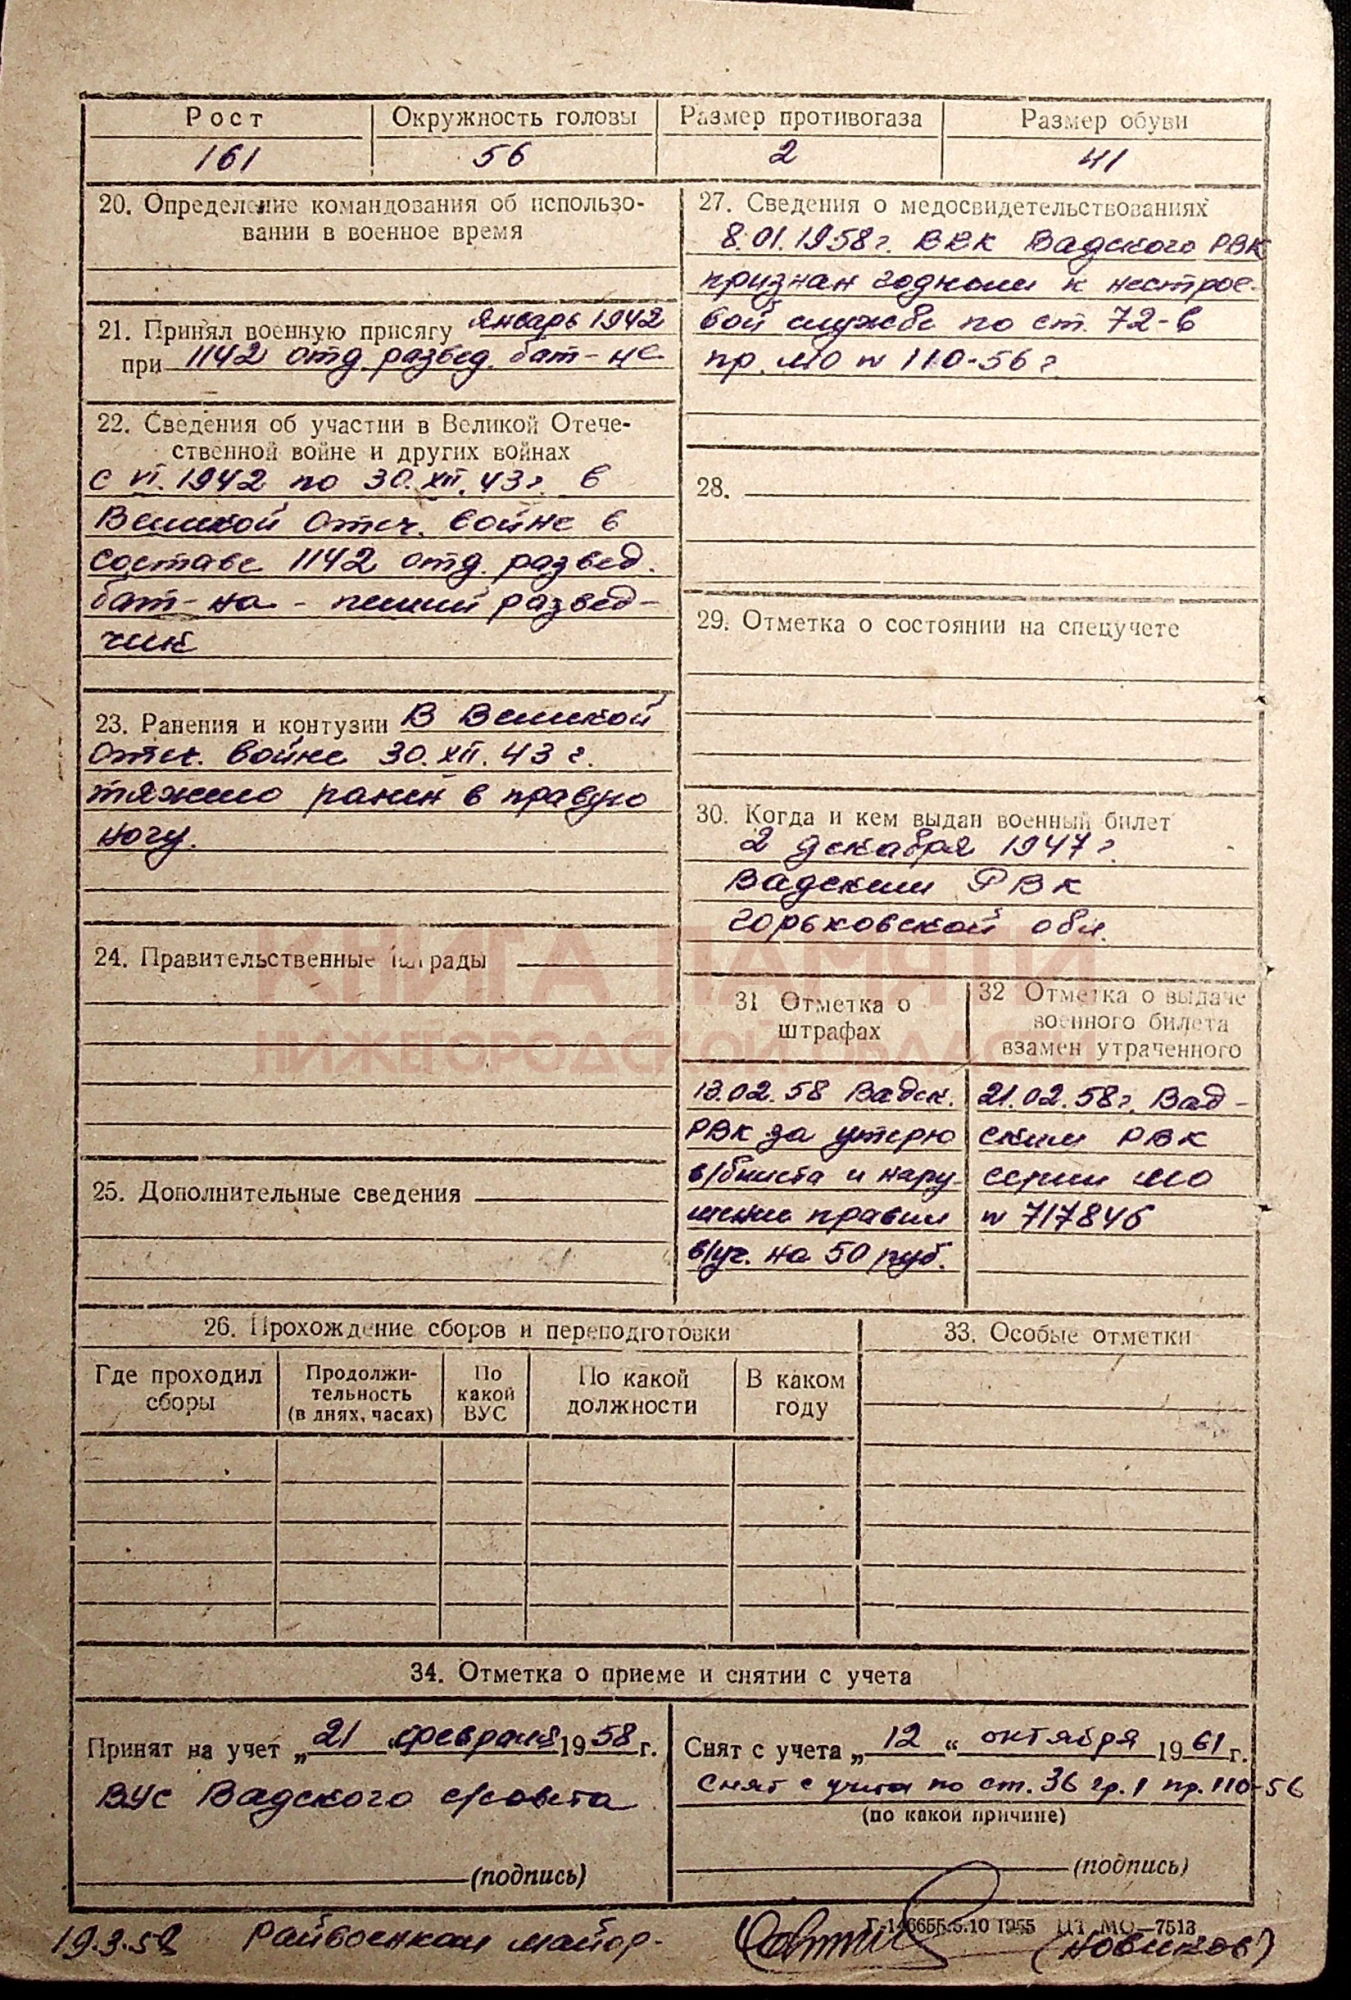 Рост
Окружность головы
Размер противогаза
Размер обуви
161
56
2
41
20. Определение командования об использо-
вании в военное время
21. Принял военную присягу январь 1942
при 1142 отд. развед. бат-не
22. Сведения об участии в Великой Отече-
ственной войне и других войнах
с VI. 1942 по 30. XII. 43 г. в
Великой Отеч. войне в
составе 1142 отд. развед.
бат-на - пеший развед-
чик
23. Ранения и контузии В Великой
Отеч. войне 30. XII. 43 г.
тяжело ранен в правую
ногу.
24. Правительственные награды
25. Дополнительные сведения
27. Сведения о медосвидетельствованиях
8.01.1958 г. ВВК Вадского РВК
признан годным к нестрое-
вой службе по ст. 72-в
пр. МО N 110-56 г
28.
29. Отметка о состоянии на спецучете
30. Когда и кем выдан военный билет
2 декабря 1947 г.
Вадским РВК
Горьковской обл.
КНИГА ПАМЯТИ
НИЖЕГОРОДСКОЙ ОБЛАСТИ
31 Отметка о
штрафах
13.02.58 Вадск.
РВК за утерю
в/билета и нару-
шение правил
в/уч. на 50 руб.
32 Отметка о выдаче
военного билета
взамен утраченного
21.02.58 г. Вад-
ским РВК
серии МО
N 717846
26. Прохождение сборов и переподготовки
Где проходил
сборы
Продолжи-
тельность
(в днях, часах)
По
какой
ВУС
По какой
должности
В каком
году
33. Особые отметки
34. Отметка о приеме и снятии с учета
Принят на учет „21 „февраля 1958 г.
ВУС Вадского с/совета
(подпись)
Снят с учета „12“ октября 1961 г.
Снят с учета по ст. 36 гр. 1 пр. 110-56
(по какой причине)
(подпись)
Г-146655.5.10 1955 ЦТ МО—7513
19.3.58 Райвоенком майор. (Новиков)